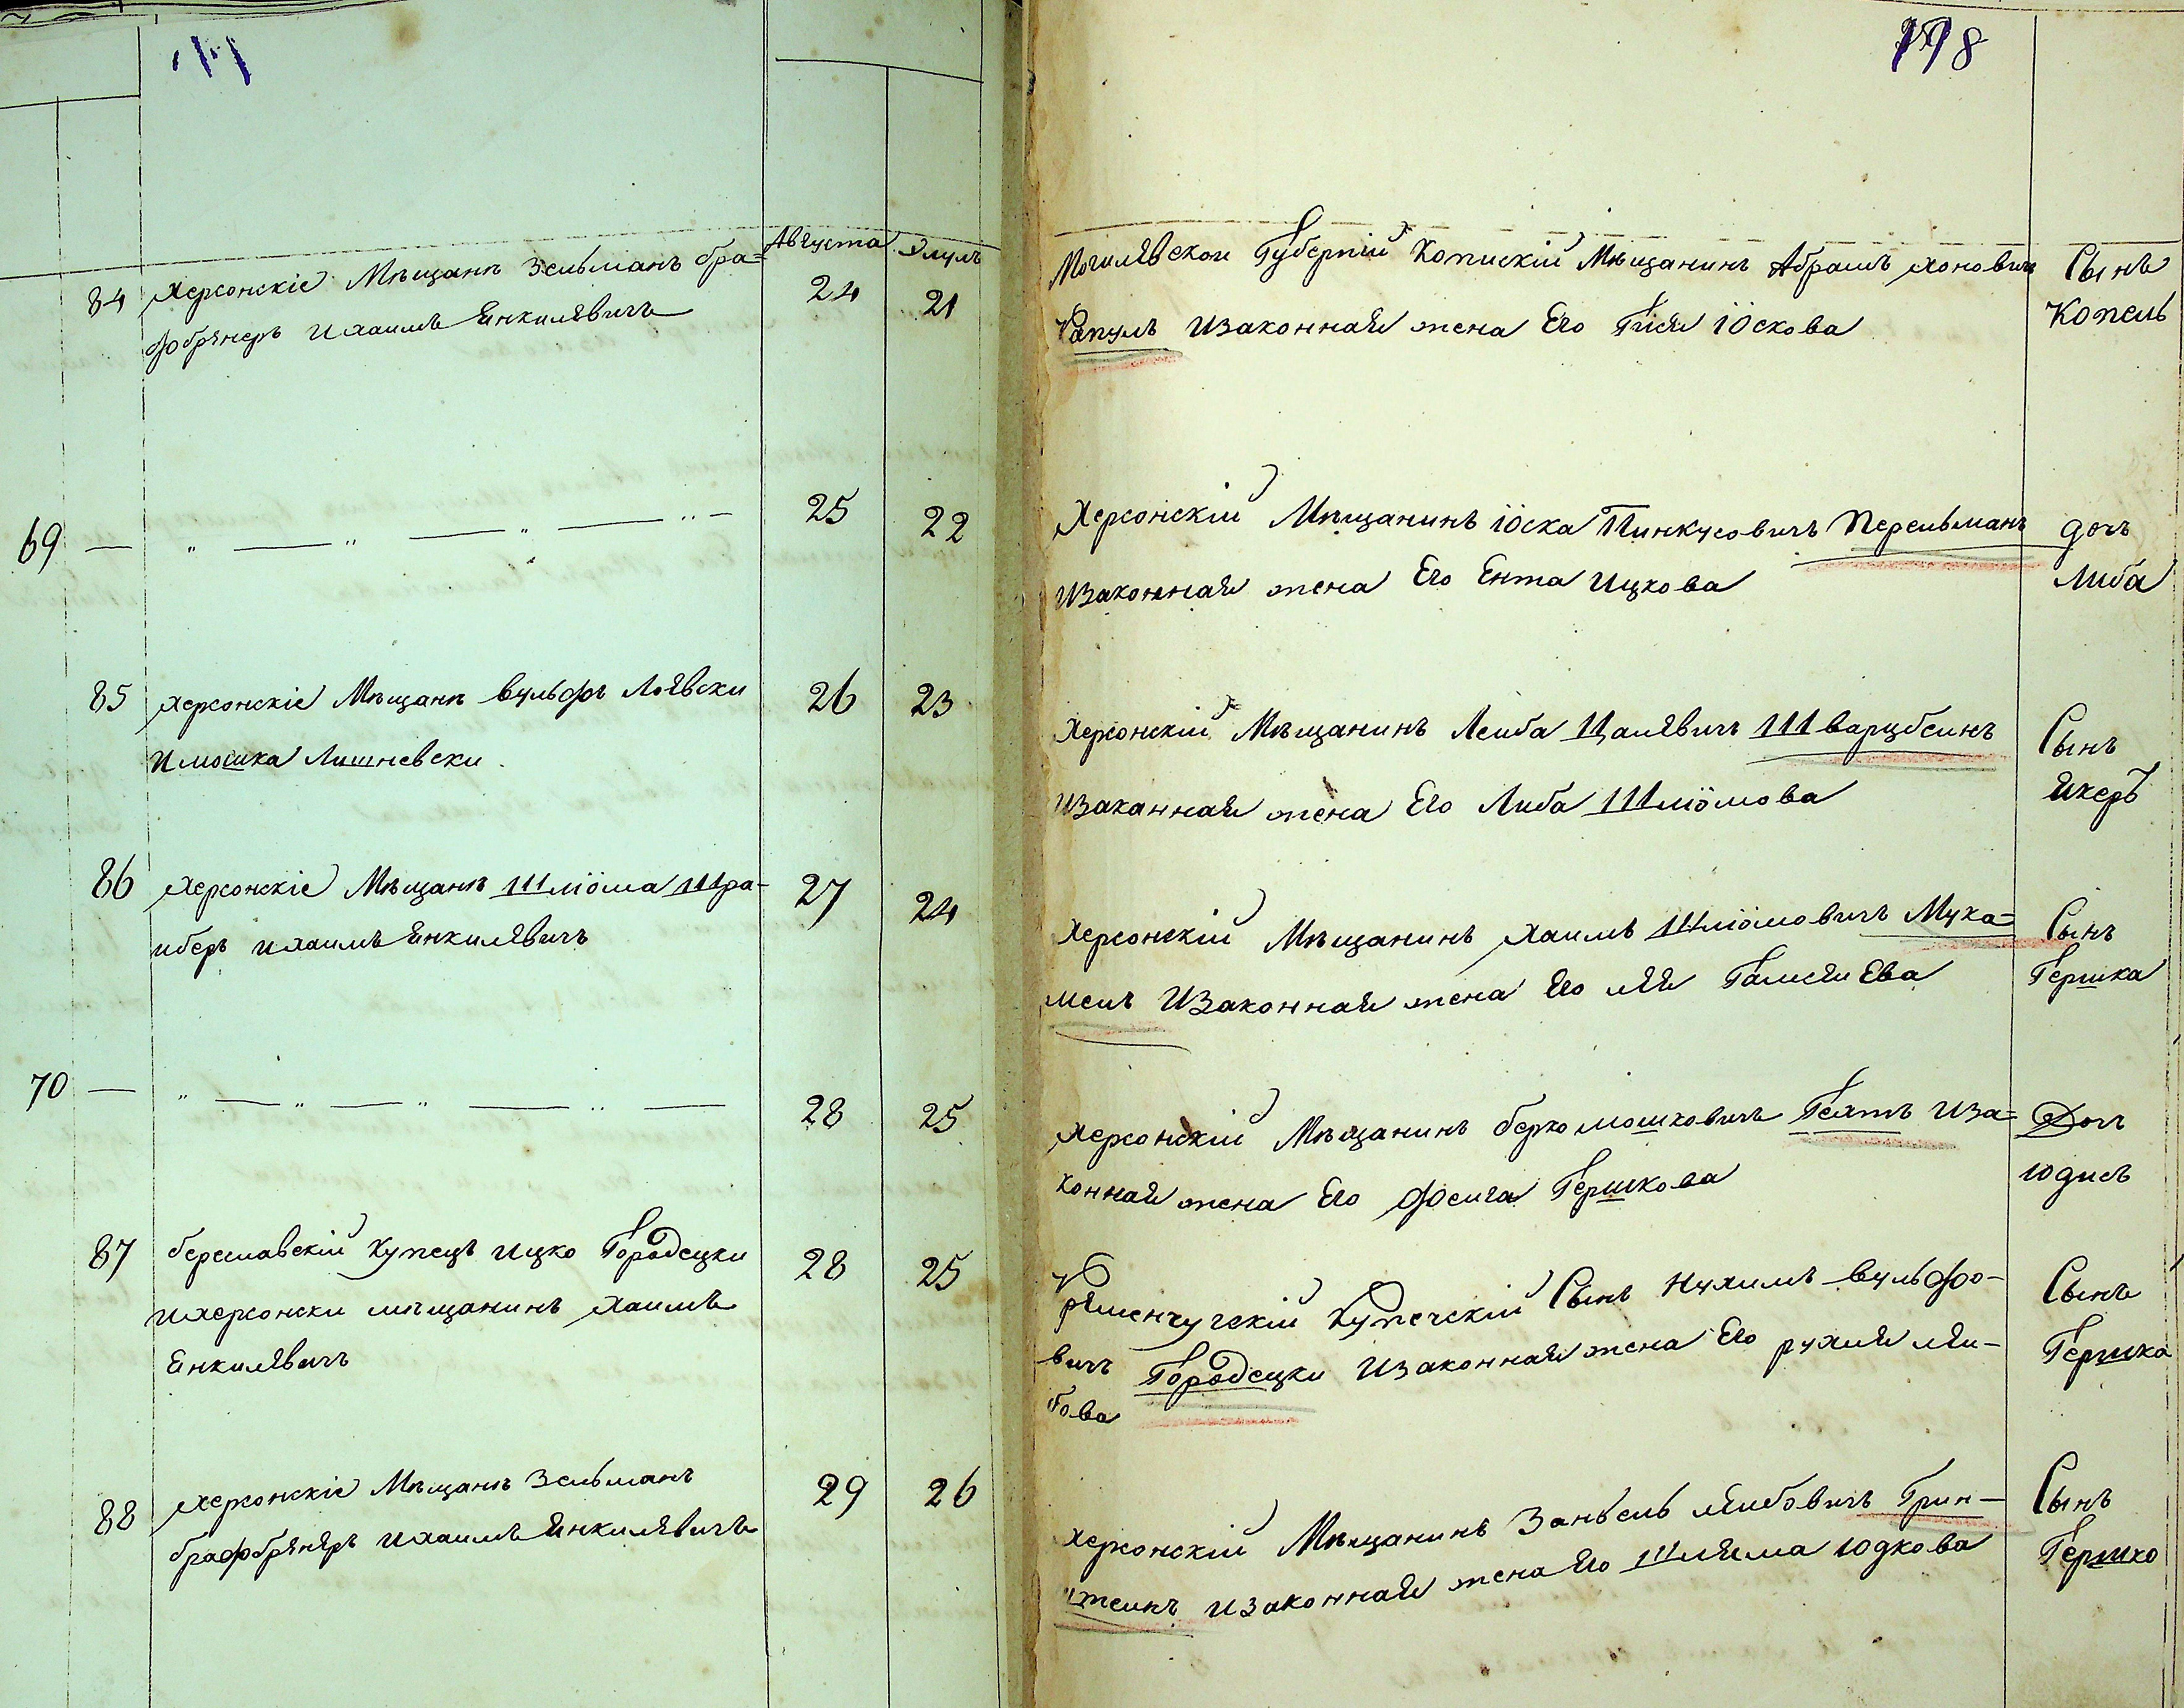 198
Августа Элулъ
84 Херсонскіе Мѣщанѣ Зельманъ бра=
фобрѣнеръ и Хаимъ Енкилевичъ
24 21
Могилевской Губерніи Копискій Мѣщанинъ Абрамъ Хоновичъ
Капулъ и законная жена Его Гися Іоскова
Сынъ
Копель
69 — " — " — " — " —
25 22
Херсонскій Мѣщанинъ Іоска Пинкусовичъ Перельманъ
и законная жена Его Ента Ицкова
дочь
Либа
85 Херсонскіе Мѣщанѣ Вульфъ Лоевски
и мошка Лишневски
26 23
Херсонскій Мѣщанинъ Леиба Цалевичъ Шварцбеинъ
и заканная жена Его Либа Шліомова
Сынъ
Якеръ
86 Херсонскіе Мѣщанѣ Шліома Шра-
иберъ и Хаимъ Енкилевичъ
27 24
Херсонскій Мѣщанинъ Хаимъ Шліомовичъ Мука=
мелъ и законная жена Его лея
Сынъ
Гершка
70 — " — " — " — " —
28 25
Херсонскій Мѣщанинъ берко мошковичъ Гехтъ и за=
конная жена Его Фейга Гершкова
Дочь
юдись
87 бериславскій Купецъ Ицко Городецки
и херсонски мѣщанинъ Хаимъ
Енкилевичъ
28 25
Кременчугскій Купеческій Сынъ Нухимъ вульфо-
вичъ Городецки и законная жена Его рухля леи-
бова
Сынъ
Гершка
88 Херсонскіе Мѣщанѣ Зельманъ
брафобрѣнеръ и Хаимъ Енкилевичъ
29 26
Херсонскій Мѣщанинъ Занвель леибовичъ Грин-
штеинъ и законная жена Его Шлема юдкова
Сынъ
Гершко